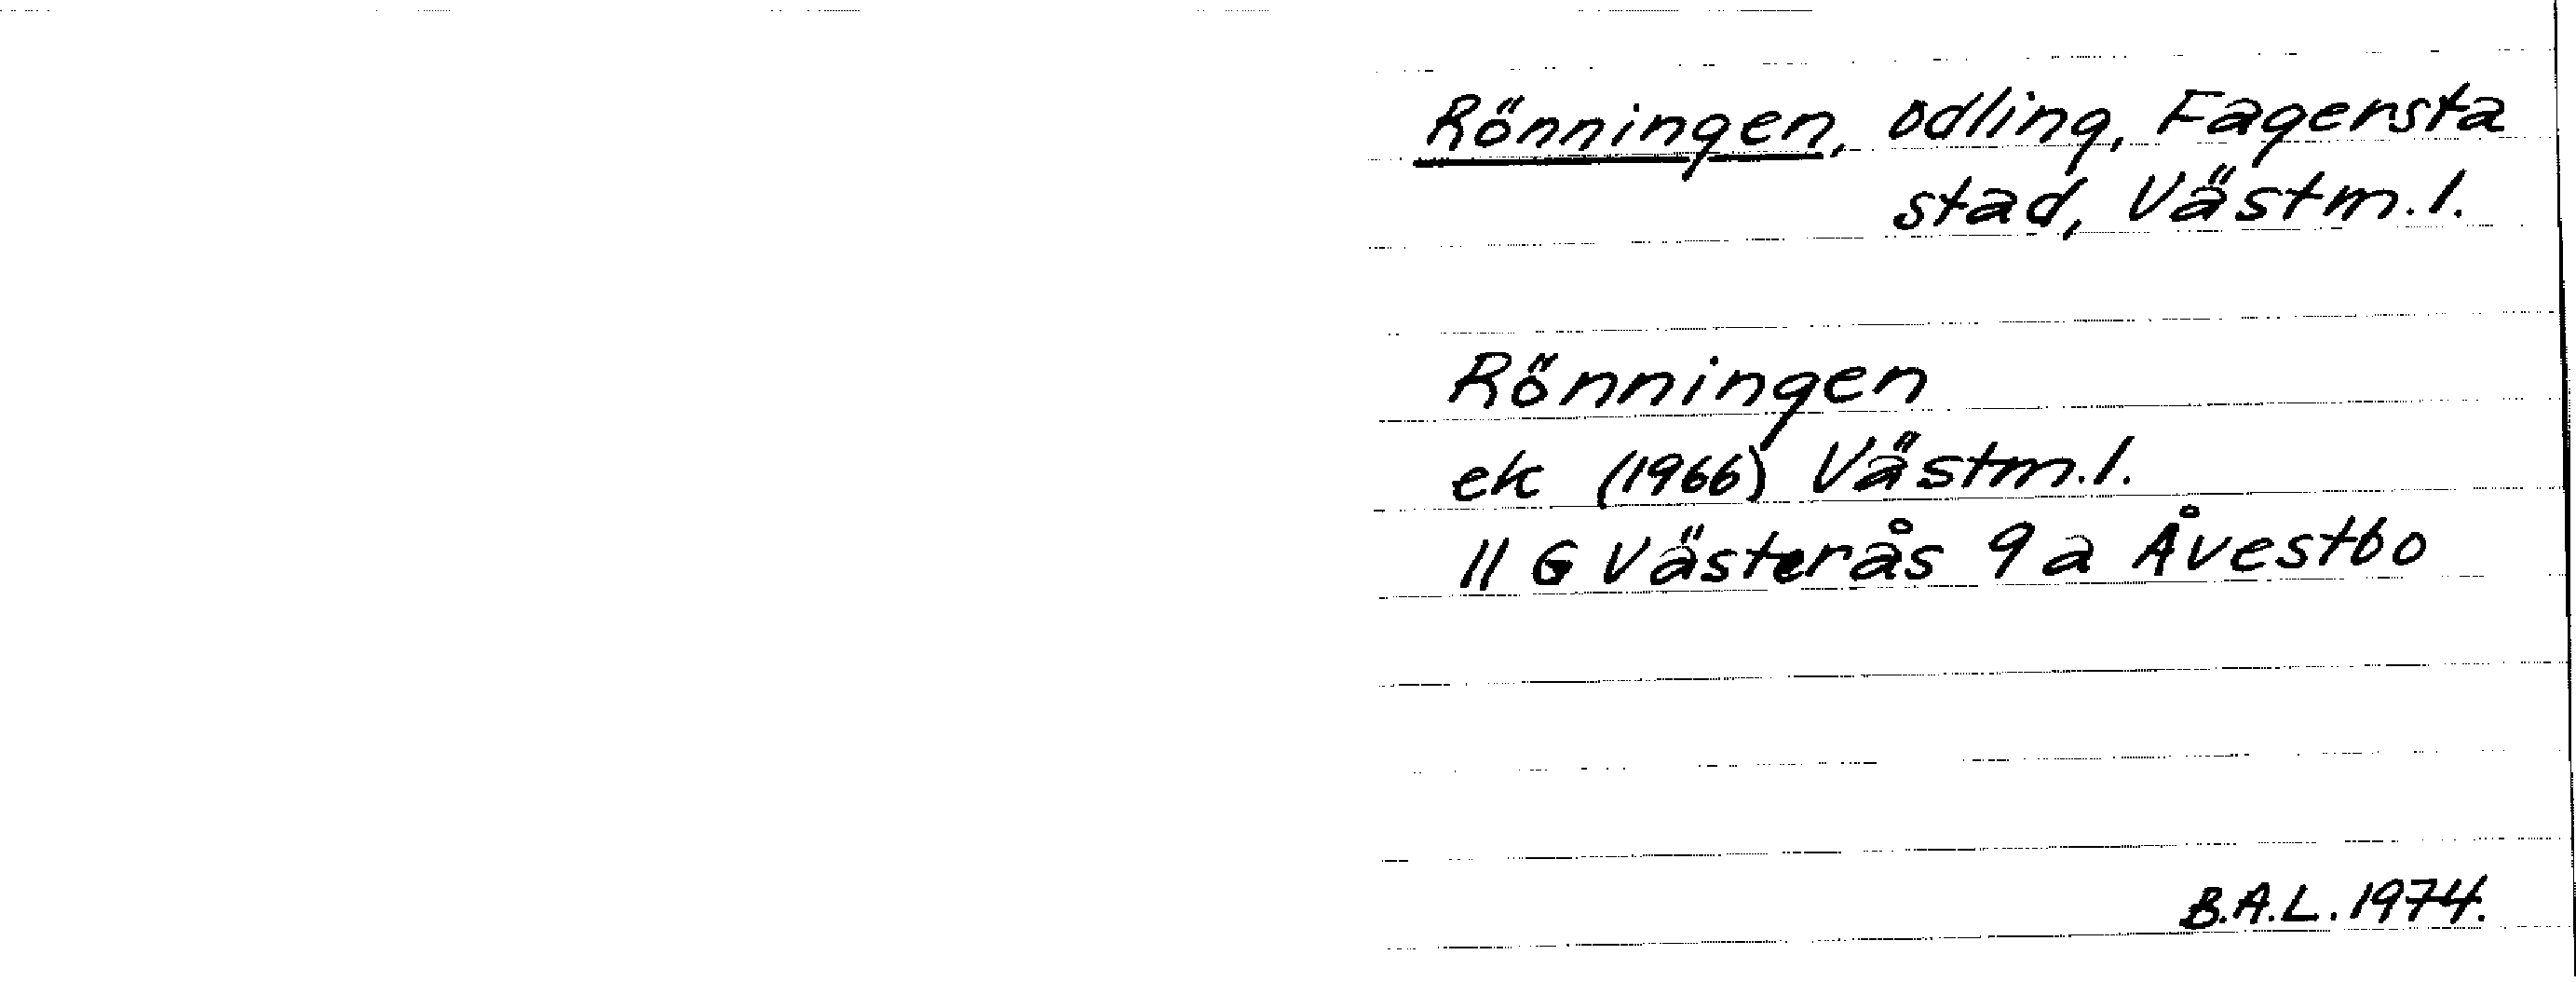 Rönningen, odling, Fagersta
stad, Västm.l.
Rönningen
ek (1966) Västm.l.
11 G Västerås 9a Åvestbo
B.A.L. 1974.